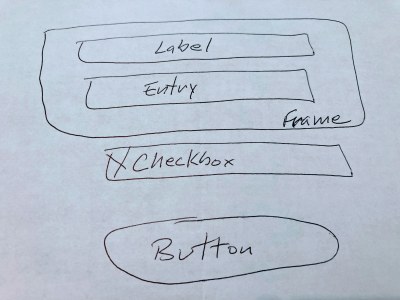 Label
Entry
Frame
Checkbox
Button